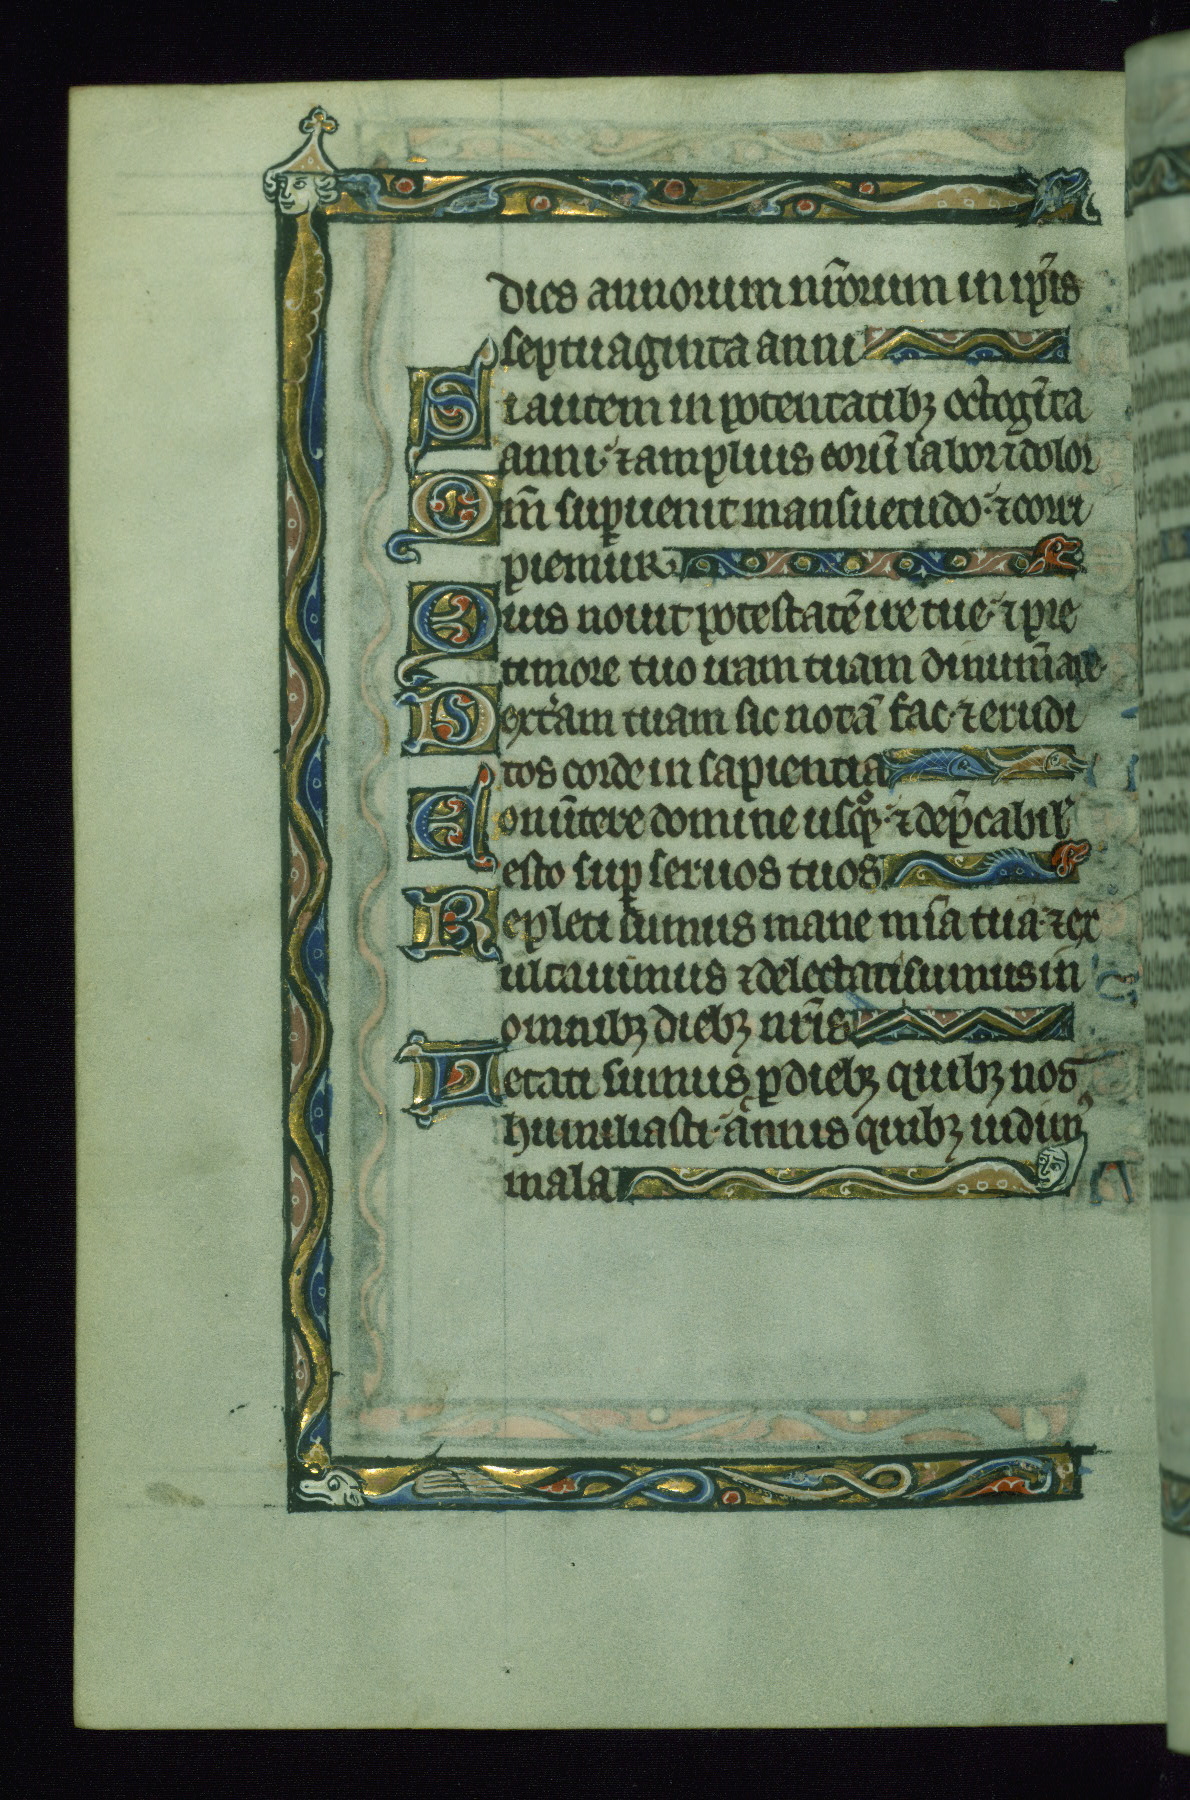 dies annorum nr̄orum in ip̄is
septuaginta anni
Si autem in potentatibꝫ octogīta
anni· ⁊ amplius eorū labor ⁊ dolor
Qm̄ suꝑuenit mansuetudo· ⁊ corri
piemur
Quis nouit potestatē ire tue· ⁊ pre
timore tuo iram tuam dinum̄are·
Dext̄am tuam sic notā fac· ⁊ erudi
tos corde in sapientia
Conūtere domine usqꝫ quo· ⁊ dep̄cabil'
esto suꝑ seruos tuos
Repleti sumus mane mīa tua· ⁊ ex
ultauimus ⁊ delectati sumus in
omnibꝫ diebꝫ nr̄is
Letati sumus ꝓ diebꝫ quibꝫ nos
humiliasti· annis quibꝫ uidimꝰ
mala